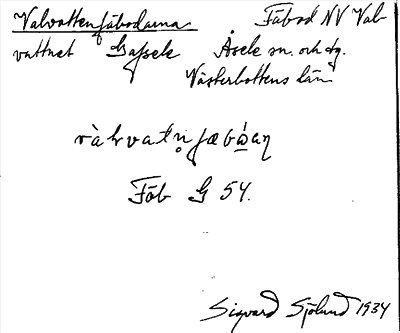 Valvattenfäbodarna Fäbod NV Val-
vattnet Gafsele Åsele sn. och dg.
Västerbottens län
Fäb G 54.
Sigvard Sjölund 1934